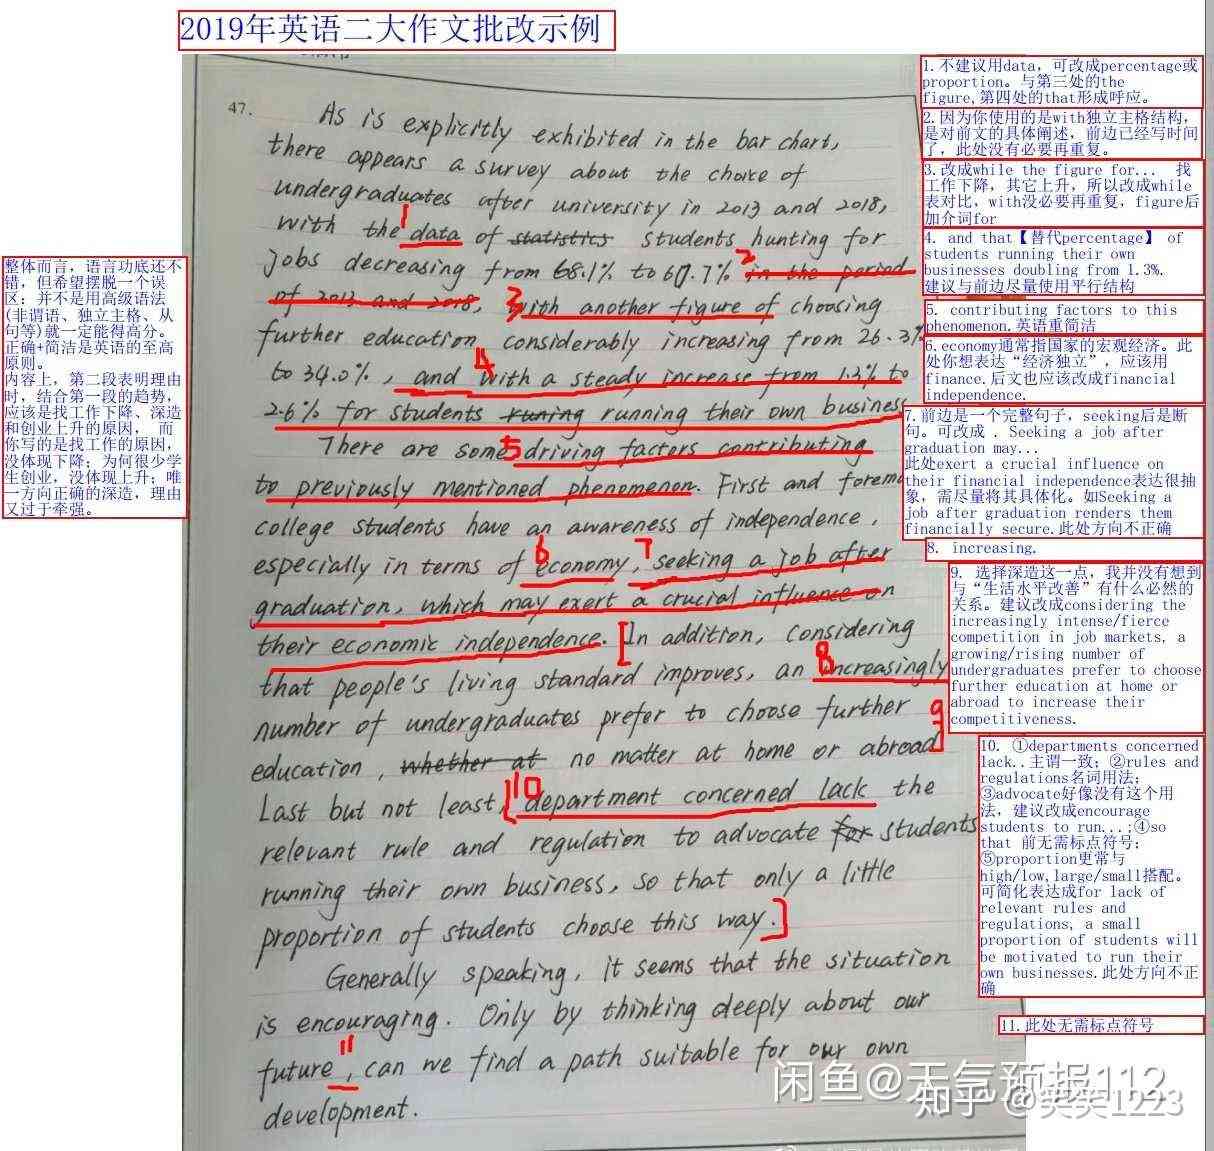 2019年英语二大作文批改示例
47.
As is explicitly exhibited in the bar chart,
there appears a survey about the choice of
undergraduates after university in 2013 and 2018,
1
with the data of statistics students hunting for
2
jobs decreasing from 68.1% to 60.7% in the period
of 2013 and 2018, 3 with another figure of choosing
further education considerably increasing from 26.3%
4
to 34.0%, and with a steady increase from 1.3% to
2.6% for students runing running their own business
There are some 5 driving factors contributing
to previously mentioned phenomenon. First and forem
college students have an awareness of independence,
6 7
especially in terms of economy, seeking a job after
graduation, which may exert a crucial influence on
their economic independence. [In addition, considering
8
that people's living standard improves, an increasingly
number of undergraduates prefer to choose further 9
education, whether at no matter at home or abroad]
10
Last but not least, [department concerned lack the
relevant rule and regulation to advocate for students
running their own business, so that only a little
proportion of students choose this way.]
Generally speaking, it seems that the situation
is encouraging. Only by thinking deeply about our
11
future, can we find a path suitable for our own
development.
整体而言，语言功底还不
错，但希望摆脱一个误
区：并不是用高级语法
(非谓语、独立主格、从
句等)就一定能得高分。
正确+简洁是英语的至高
原则。
内容上，第二段表明理由
时，结合第一段的趋势，
应该是找工作下降、深造
和创业上升的原因， 而
你写的是找工作的原因，
没体现下降；为何很少学
生创业，没体现上升；唯
一方向正确的深造，理由
又过于牵强。
1.不建议用data，可改成percentage或
proportion。与第三处的the
figure,第四处的that形成呼应。
2.因为你使用的是with独立主格结构，
是对前文的具体阐述，前边已经写时间
了，此处没有必要再重复。
3.改成while the figure for... 找
工作下降，其它上升，所以改成while
表对比，with没必要再重复，figure后
加介词for
4. and that【替代percentage】 of
students running their own
businesses doubling from 1.3%.
建议与前边尽量使用平行结构
5. contributing factors to this
phenomenon.英语重简洁
6.economy通常指国家的宏观经济。此
处你想表达“经济独立”，应该用
finance.后文也应该改成financial
independence.
7.前边是一个完整句子，seeking后是断
句。可改成 . Seeking a job after
graduation may...
此处exert a crucial influence on
their financial independence表达很抽
象，需尽量将其具体化。如Seeking a
job after graduation renders them
financially secure.此处方向不正确
8. increasing.
9. 选择深造这一点，我并没有想到
与“生活水平改善”有什么必然的
关系。建议改成considering the
increasingly intense/fierce
competition in job markets, a
growing/rising number of
undergraduates prefer to choose
further education at home or
abroad to increase their
competitiveness.
10. ①departments concerned
lack..主谓一致；②rules and
regulations名词用法；
③advocate好像没有这个用
法，建议改成encourage
students to run...;④so
that 前无需标点符号；
⑤proportion更常与
high/low,large/small搭配。
可简化表达成for lack of
relevant rules and
regulations, a small
proportion of students will
be motivated to run their
own businesses.此处方向不正
确
11.此处无需标点符号
闲鱼@天气预报112
知乎 @笑笑1223